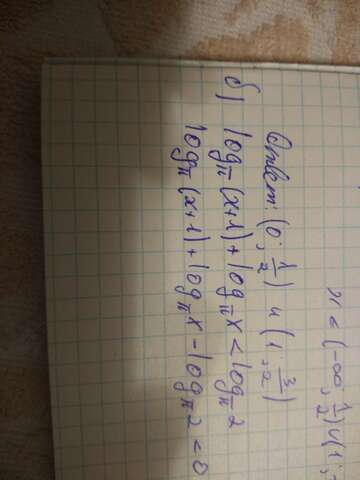 x ∈ (-∞; 1/2) ∪ (1;
Ответ: (0; 1/2) и (1; 3/2)
б) log_π(x+1) + log_π x < log_π 2
log_π(x+1) + log_π x - log_π 2 < 0